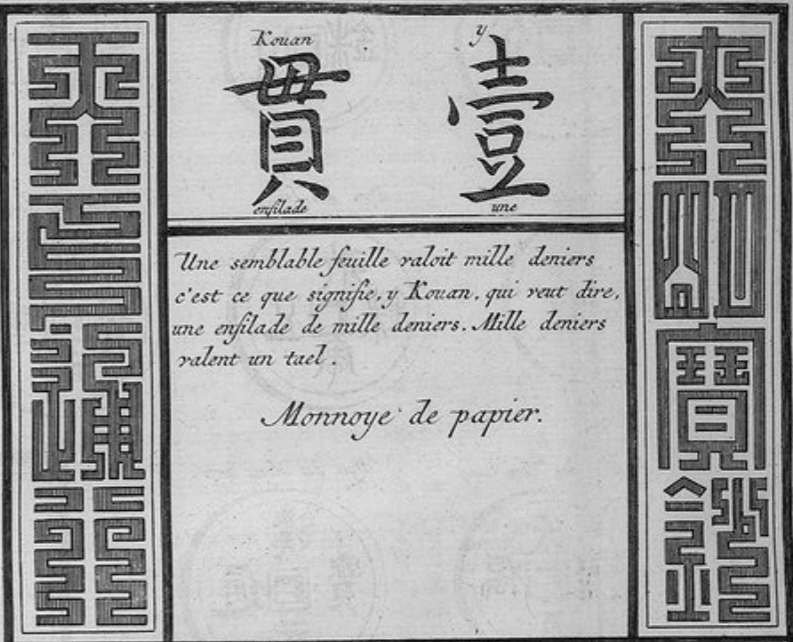 天下通行
Kouan y
貫 壹
enfilade une
Une semblable feuille valoit mille deniers
c'est ce que signifie, y Kouan, qui veut dire,
une enfilade de mille deniers. Mille deniers
valent un tael.
Monnoye de papier.
大明寶鈔